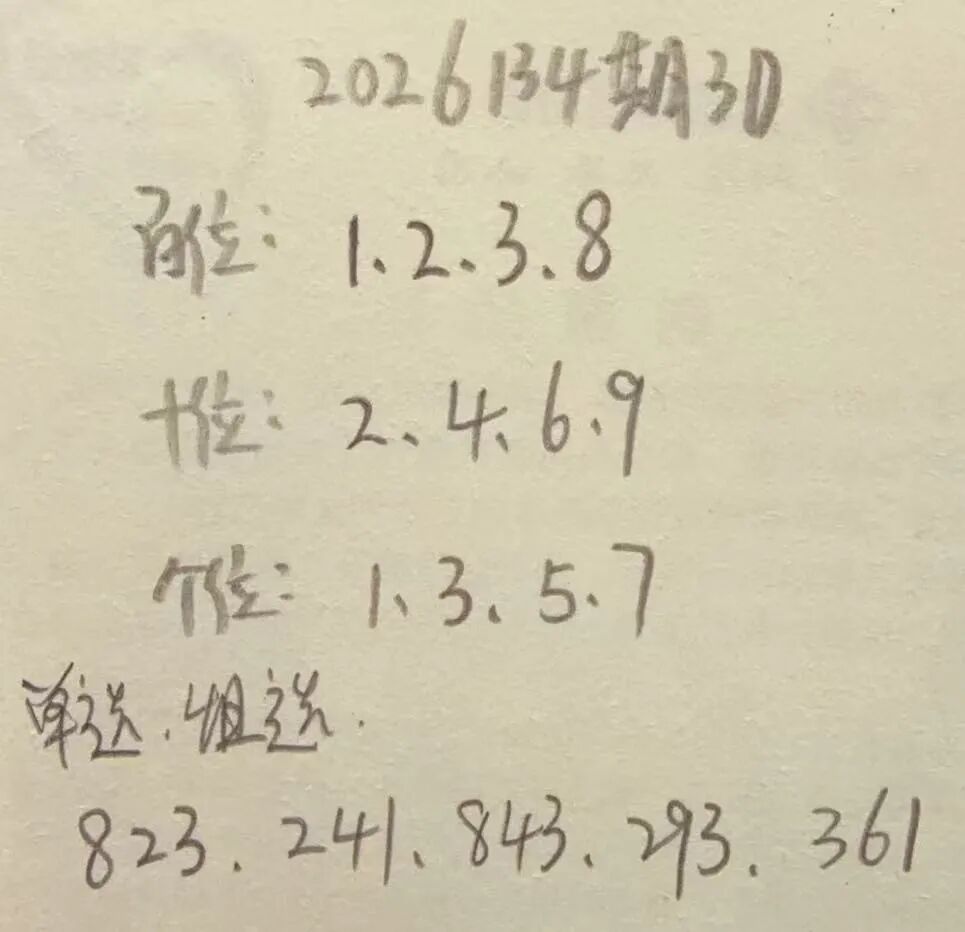 2026134期3D
百位：1.2.3.8
十位：2.4.6.9
个位：1.3.5.7
单选.组选.
823.241.843.293.361